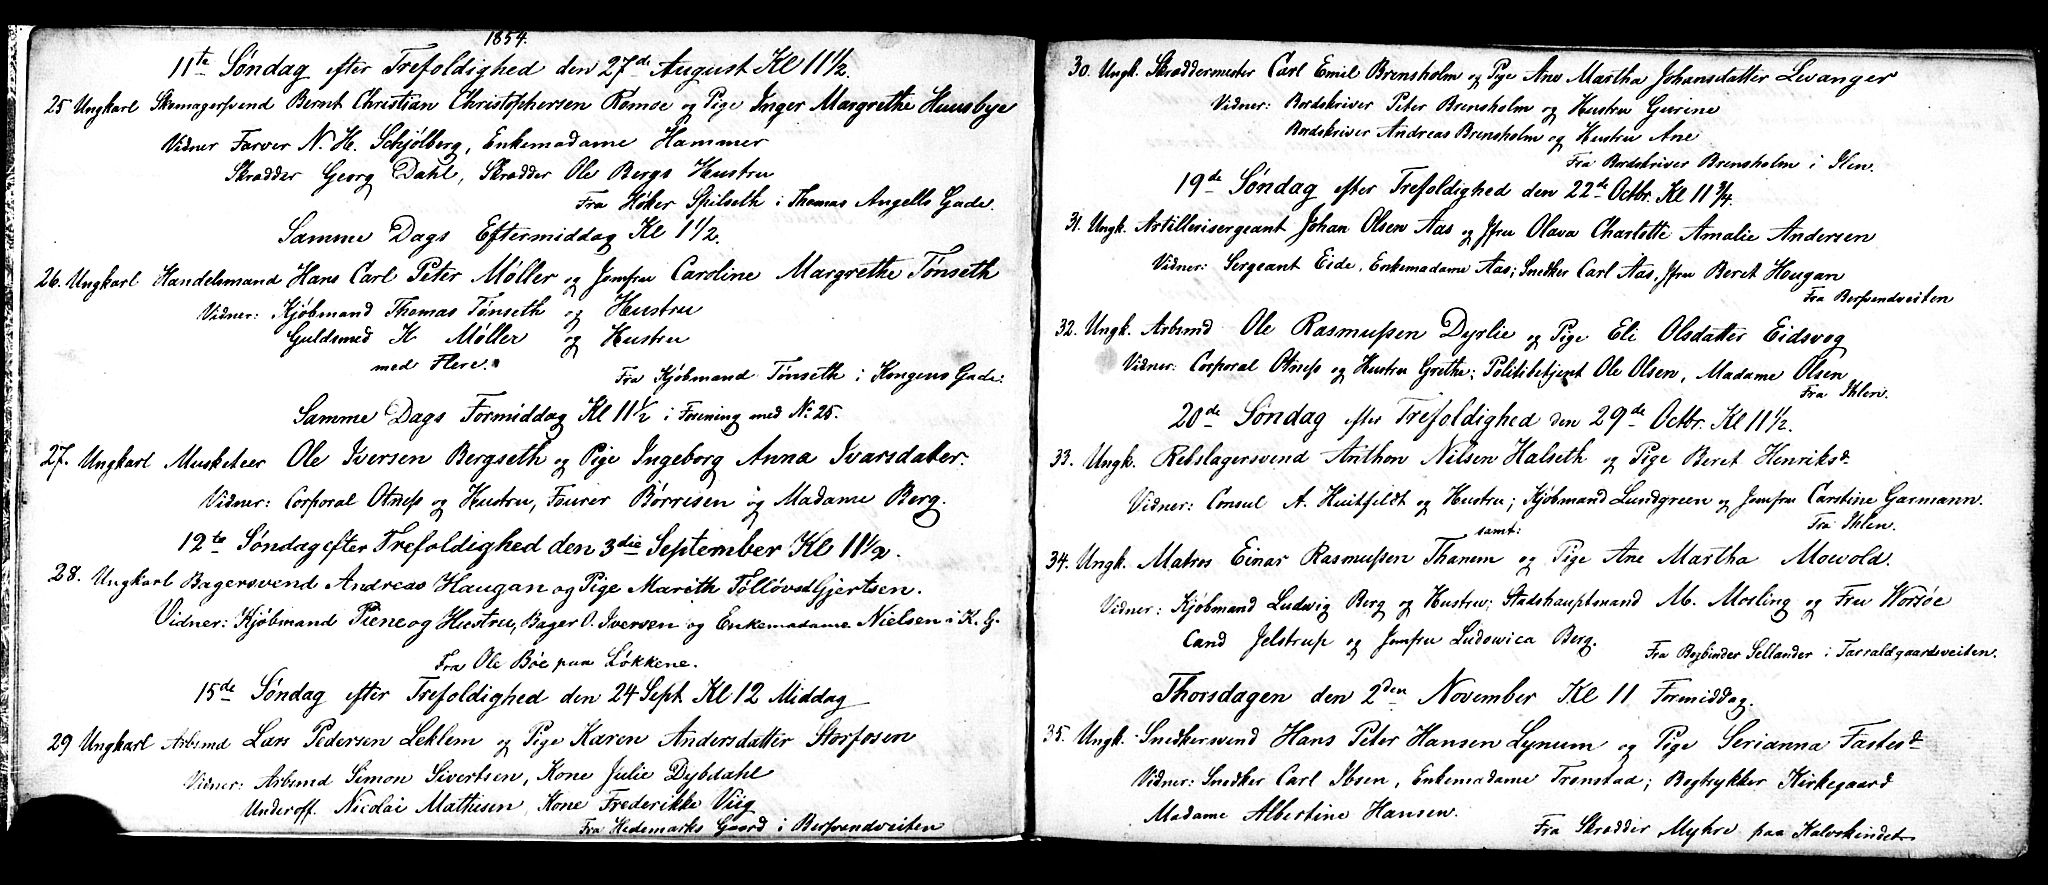 1854.
11te Søndag efter Trefoldighed den 27de August Kl 11 1/2.
25 Ungkarl Skomagersvend Bernt Christian Christophersen Romoe og Pige Inger Margrethe Huusbye
Vidner Farver N. H. Schjølberg, Enkemadame Hammer
Skrædder Georg Dahl, Skrædder Ole Bergs Hustru
Fra Høker Spilseth i Thomas Angells Gade.
Samme Dags Eftermiddag Kl 1 1/2.
26. Ungkarl Handelsmand Hans Carl Peter Møller og Jomfru Caroline Margrethe Tønseth
Vidner: Kjøbmand Thomas Tønseth og Hustru
Guldsmed K Møller og Hustru
med Flere.
Fra Kjøbmand Tønseth i Kongens Gade.
Samme Dags Formiddag Kl 11 1/2 i Forening med No 25.
27. Ungkarl Musketeer Ole Iversen Bergseth og Pige Ingeborg Anna Ivarsdatter.
Vidner: Corporal Otness og Hustru, Fourer Børresen og Madame Berg.
12te Søndag efter Trefoldighed den 3die September Kl 11 1/2.
28. Ungkarl Bagersvend Andreas Haugan og Pige Marith Tølløvsd Gjertsen.
Vidner: Kjøbmand Piene og Hustru, Bager O. Iversen og Enkemadame Nielsen i K. G.
Fra Ole Böe paa Løkkene.
15de Søndag efter Trefoldighed den 24 Sept Kl 12 Middag
29 Ungkarl Arbsmd Lars Pedersen Leklem og Pige Karen Andersdatter Storfosen
Vidner: Arbsmd Simon Sivertsen, Kone Julie Dybdahl
Underoff. Nicolai Mathisen, Kone Frederikke Viig
Fra Hedemarks Gaard i Bersvendveiten
30. Ungk. Skræddermester Carl Emil Brensholm og Pige Ane Martha Johansdatter Levanger
Vidner: Bordskriver Peter Brensholm og Hustru Gurine
Bordskriver Andreas Brensholm og Hustru Ane
Fra Bordskriver Brensholm i Ilen.
19de Søndag efter Trefoldighed den 22de Octbr. Kl 11 3/4.
31. Ungk. Artillerisergeant Johan Olsen Aas og Jfru Olava Charlotte Amalie Andersen
Vidner: Sergeant Eide, Enkemadame Aas; Snedker Carl Aas, Jfru Beret Hougan
Fra Bersvendveiten
32. Ungk. Arbsmd Ole Rasmussen Dyrlie og Pige Eli Olsdatter Eidsvog
Vidner: Corporal Otness og Hustru Grethe; Politibetjent Ole Olsen, Madame Olsen
Fra Ihlen.
20de Søndag efter Trefoldighed den 29de Octbr. Kl 11 1/2.
33. Ungk. Rebslagersvend Anthon Nilsen Halseth og Pige Beret Henriksd.
Vidner: Consul A. Huitfeldt og Hustru; Kjøbmand Lundgreen og Jomfru Carstine Garmann.
Fra Ihlen.
samt:
34. Ungk. Matros Einar Rasmussen Thanem og Pige Ane Martha Moevold.
Vidner: Kjøbmand Ludwig Berg og Hustru; Stadshauptmand M. Mosling og Fru Worsøe
Cand Jelstrup og Jomfru Ludovica Berg.
Fra Bogbinder Sellander i Tarraldgaardsveiten.
Thorsdagen den 2den November Kl 11 Formiddag.
35. Ungk. Snedkersvend Hans Peter Hansen Lynum og Pige Serianna Fastesd
Vidner: Snedker Carl Ibsen, Enkemadame Tronstad; Bogtrykker Kirkegaard
Madame Albertine Hansen.
Fra Skrædder Myhre paa Kalvskindet